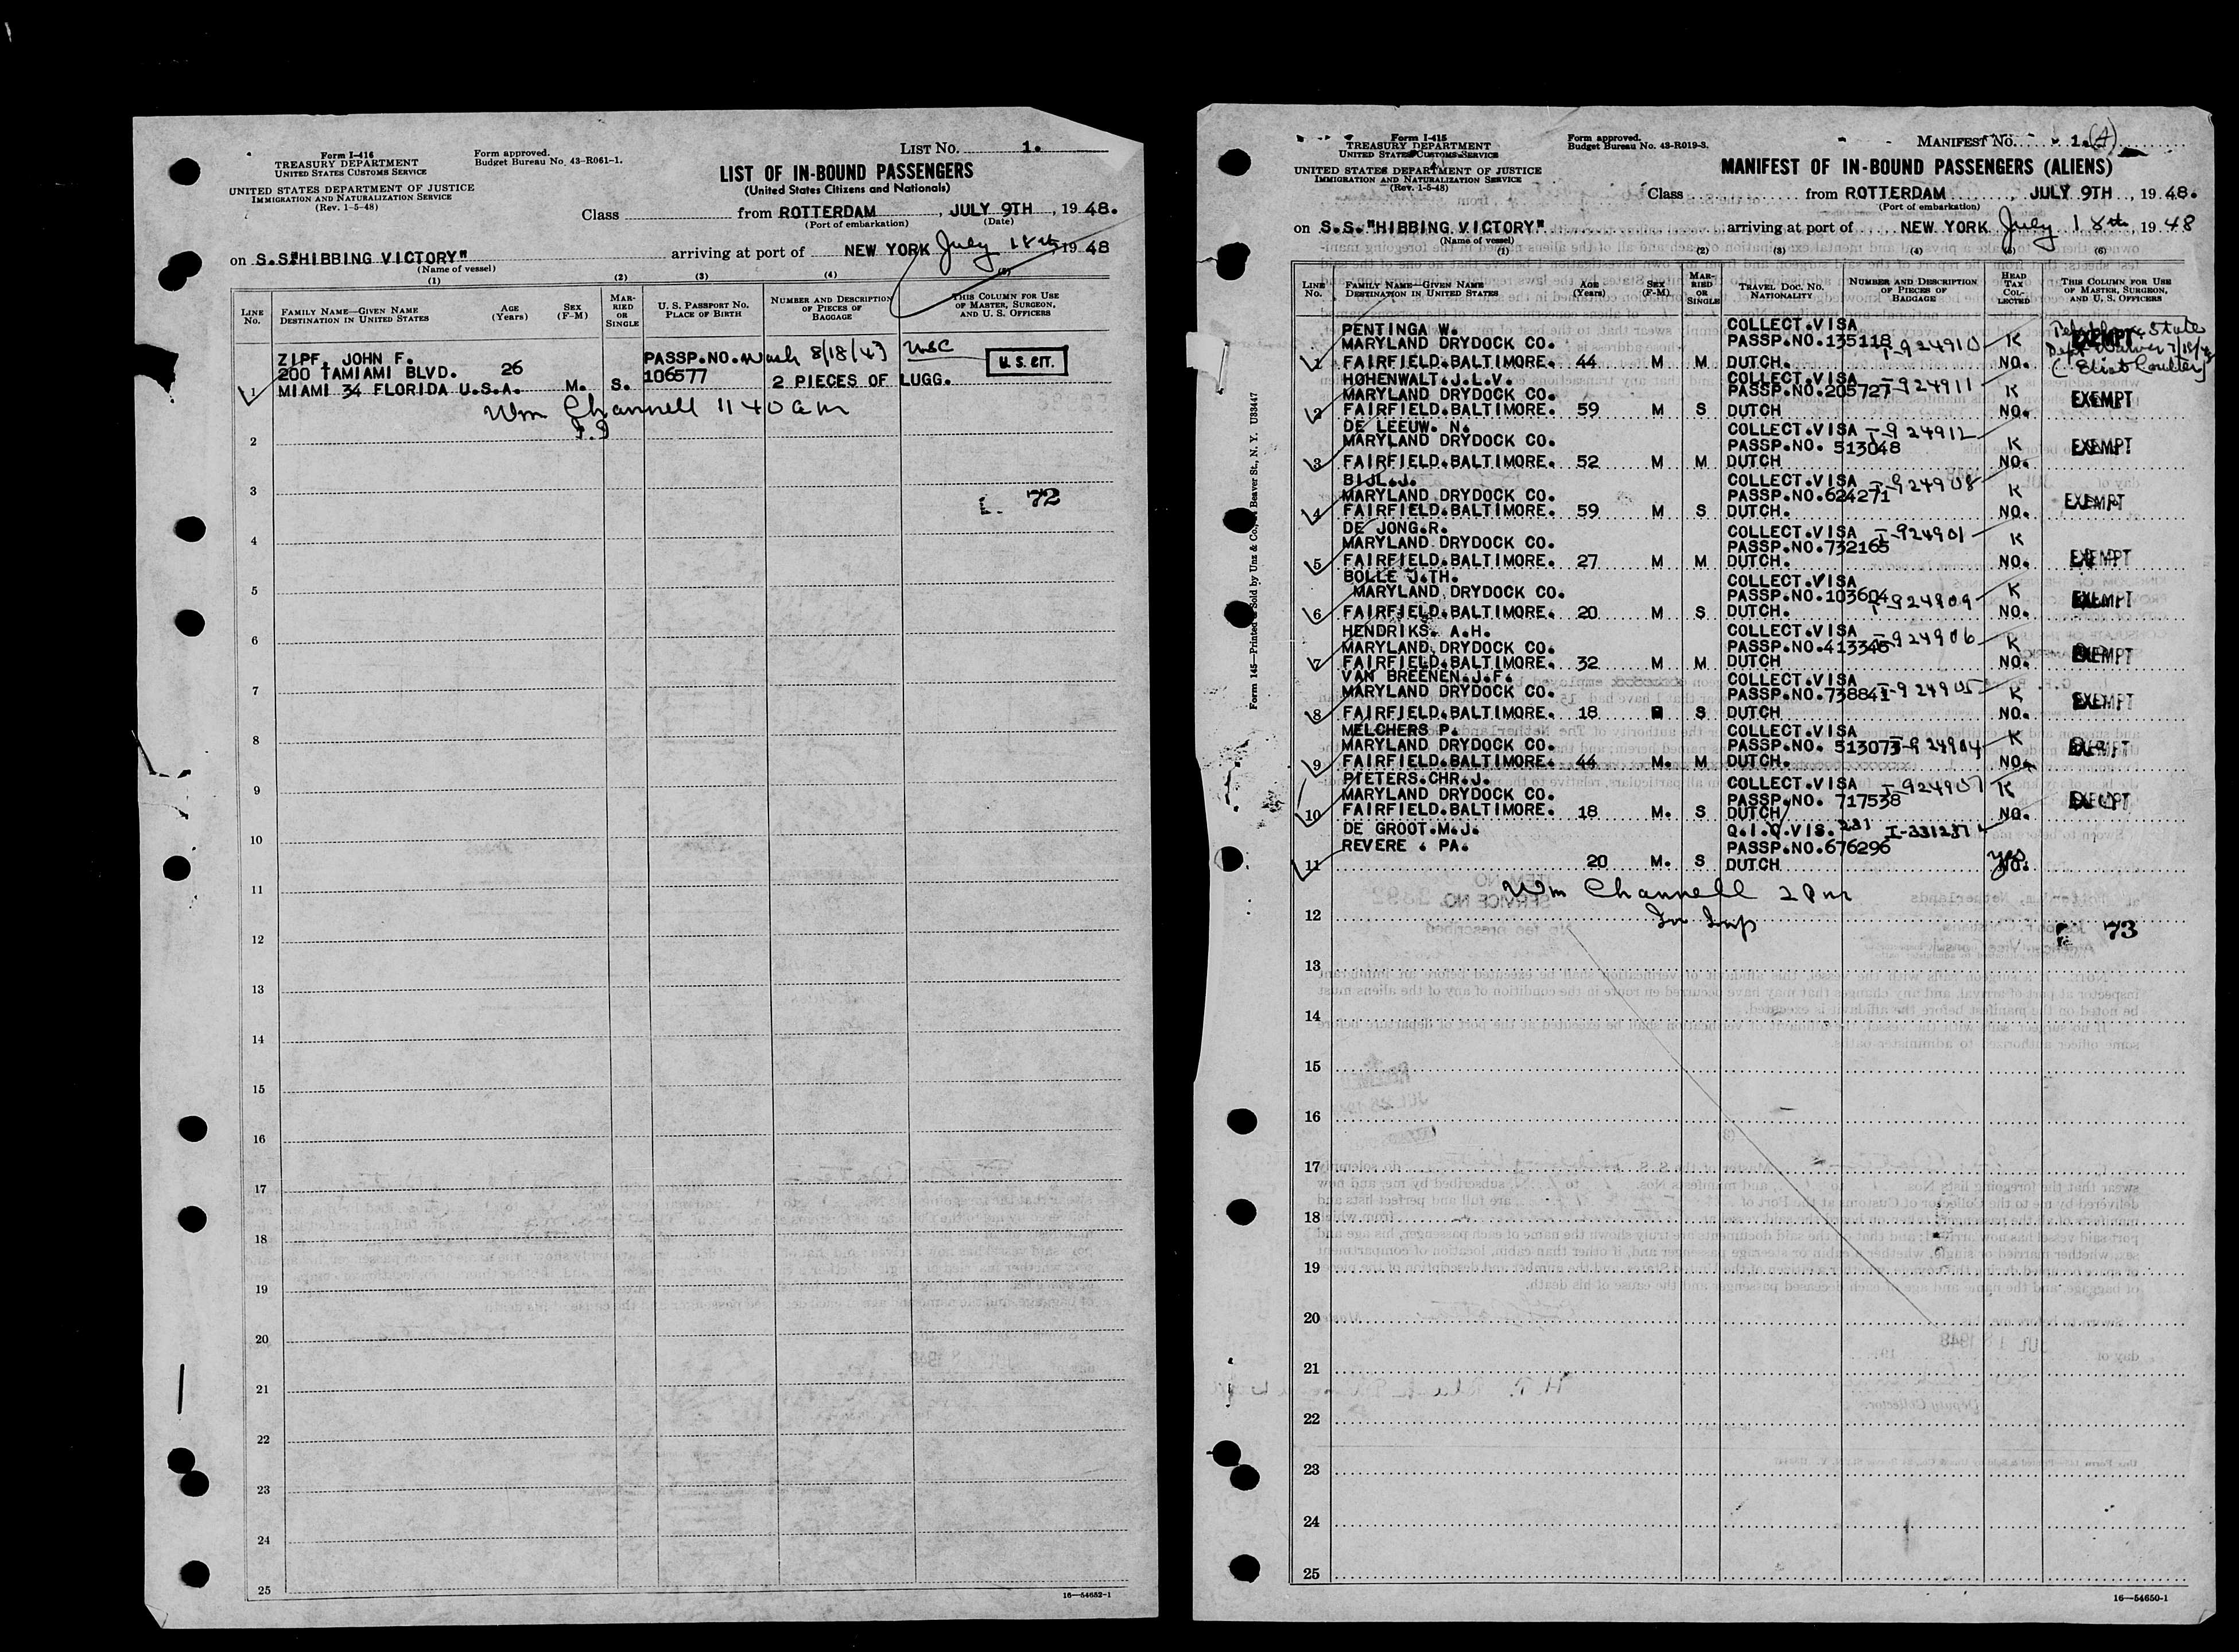 Form I-416
TREASURY DEPARTMENT
UNITED STATES CUSTOMS SERVICE
UNITED STATES DEPARTMENT OF JUSTICE
IMMIGRATION AND NATURALIZATION SERVICE
(Rev. 1-5-48)
Form approved.
Budget Bureau No. 43-R061-1.
LIST No. 1.
LIST OF IN-BOUND PASSENGERS
(United States Citizens and Nationals)
Class from ROTTERDAM, JULY 9TH, 1948.
(Port of embarkation) (Date)
on S.S."HIBBING VICTORY" arriving at port of NEW YORK July 18th, 1948
(Name of vessel)
(1) (2) (3) (4) (5)
LINE No. FAMILY NAME—GIVEN NAME DESTINATION IN UNITED STATES AGE (Years) SEX (F-M) MARRIED OR SINGLE U. S. PASSPORT No. PLACE OF BIRTH NUMBER AND DESCRIPTION OF PIECES OF BAGGAGE THIS COLUMN FOR USE OF MASTER, SURGEON, AND U. S. OFFICERS
ZIPF, JOHN F. PASSP.NO. Wash 8/18/47 USC
200 TAMIAMI BLVD. 26 106577 U. S. CIT.
MIAMI 34 FLORIDA U.S.A. M. S. 2 PIECES OF LUGG.
Wm Channell 1140 am
2
3
72
4
5
6
7
8
9
10
11
12
13
14
15
16
17
18
19
20
21
22
23
24
25
16—54652-1
Form I-415
TREASURY DEPARTMENT
UNITED STATES CUSTOMS SERVICE
UNITED STATES DEPARTMENT OF JUSTICE
IMMIGRATION AND NATURALIZATION SERVICE
(Rev. 1-5-48)
Form approved.
Budget Bureau No. 43-R019-3.
MANIFEST No. 1.(A)
MANIFEST OF IN-BOUND PASSENGERS (ALIENS)
Class from ROTTERDAM, JULY 9TH, 1948.
(Port of embarkation)
on S.S."HIBBING VICTORY" arriving at port of NEW YORK July 18th, 1948
(Name of vessel)
(1) (2) (3) (4) (5) (6)
LINE No. FAMILY NAME—GIVEN NAME DESTINATION IN UNITED STATES AGE (Years) SEX (F-M) MARRIED OR SINGLE TRAVEL DOC. NO. NATIONALITY NUMBER AND DESCRIPTION OF PIECES OF BAGGAGE HEAD TAX COLLECTED THIS COLUMN FOR USE OF MASTER, SURGEON, AND U. S. OFFICERS
PENTINGA W. COLLECT.VISA State
MARYLAND DRYDOCK CO. PASSP.NO.135118 I-924910 K EXEMPT
1 FAIRFIELD.BALTIMORE. 44 M M DUTCH.
HOHENWALT.J.L.V. COLLECT.VISA I-924911
MARYLAND DRYDOCK CO. PASSP.NO.205727 K EXEMPT
2 FAIRFIELD.BALTIMORE. 59 M S DUTCH NO.
DE LEEUW. N. COLLECT.VISA I-924912
MARYLAND DRYDOCK CO. PASSP.NO. 513048 K EXEMPT
3 FAIRFIELD.BALTIMORE. 52 M M DUTCH NO.
BIJL.J. COLLECT.VISA I-924908
MARYLAND DRYDOCK CO. PASSP.NO.624271 K EXEMPT
4 FAIRFIELD.BALTIMORE. 59 M S DUTCH. NO.
DE JONG.R. COLLECT.VISA I-924901
MARYLAND DRYDOCK CO. PASSP.NO.732165 K EXEMPT
5 FAIRFIELD.BALTIMORE. 27 M M DUTCH. NO.
BOLLE J.TH. COLLECT.VISA
MARYLAND DRYDOCK CO. PASSP.NO.103604 I-924909 K EXEMPT
6 FAIRFIELD.BALTIMORE. 20 M S DUTCH. NO.
HENDRIKS. A.H. COLLECT.VISA I-924906
MARYLAND DRYDOCK CO. PASSP.NO.413346 K EXEMPT
7 FAIRFIELD.BALTIMORE. 32 M M DUTCH NO.
VAN BREENEN.J.F. COLLECT.VISA
MARYLAND DRYDOCK CO. PASSP.NO.738841 I-924905 K EXEMPT
8 FAIRFIELD.BALTIMORE. 18 S DUTCH NO.
MELCHERS P. COLLECT.VISA
MARYLAND DRYDOCK CO. PASSP.NO. 513073 I-924904 K EXEMPT
9 FAIRFIELD.BALTIMORE. 44 M. M DUTCH. NO.
PIETERS.CHR.J. COLLECT.VISA I-924907
MARYLAND DRYDOCK CO. PASSP.NO. 717538 K EXEMPT
10 FAIRFIELD.BALTIMORE. 18 M. S DUTCH NO.
DE GROOT.M.J. Q.I.Q.VIS. 231 I-331237
REVERE . PA. PASSP.NO.676296 yes
11 20 M. S DUTCH NO.
Wm Channell 2 Pm
12
73
13
14
15
16
17
18
19
20
21
22
23
24
25
16—54650-1